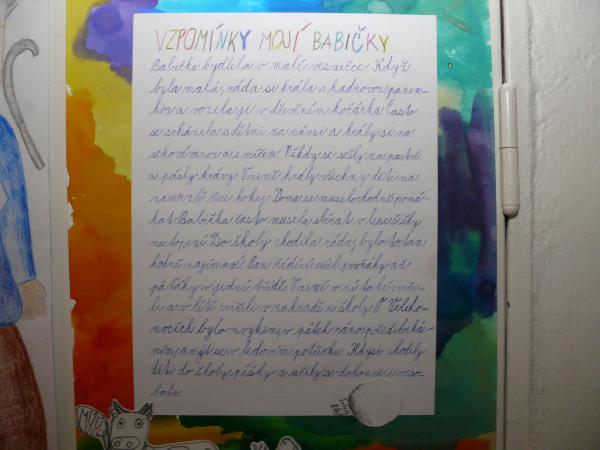 VZPOMÍNKY MOJÍ BABIČKY
Babička bydlela v malé vesničce. Když
byla malá, ráda si hrála s hadrovou panen-
kou a vozila ji v dřevěném kočárku. Často
se scházela s dětmi na návsi a hrály si na
schovávanou a s míčem. Někdy se sešly na pastvě
a pásly krávy. V zimě hrály všechny děti na
zamrzlé řece hokej. Doma se muselo hodně pomá-
hat. Babička často musela sbírat v lese šišky
na topení. Do školy chodila ráda, bylo to tam
hodně zajímavé. Pan řídící učil prvňáky až
páťáky v jedné třídě. V zimě v ní také cviči-
li a v létě cvičili v zahradě u školy. O Veliko-
nocích bylo zvykem, v pátek ráno před hrká-
ním, umýt se v ledovém potůčku. Kdysi chodily
děti do školy pěšky a učily se dokonce i v so-
botu.